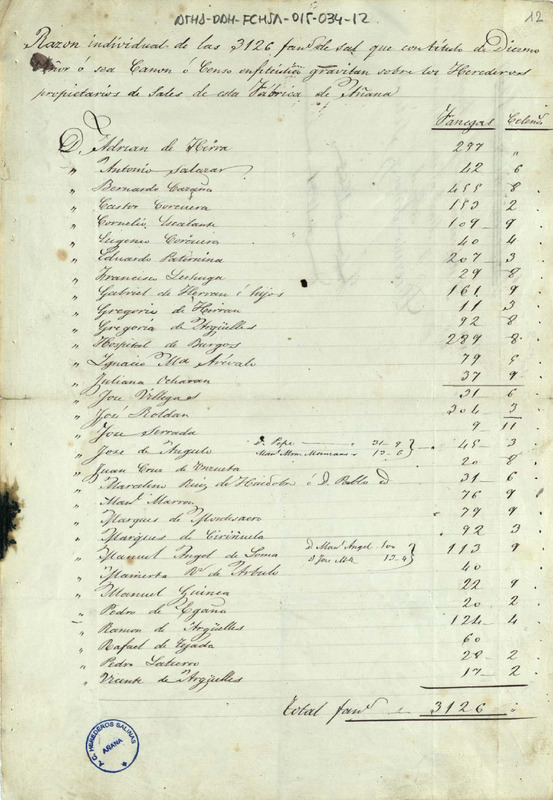 ATHA-DAH-FCHSA-015-034-12
12
Razon individual de las 3126 fan.s de sal que con titulo de Diezmo
Señor ó sea Canon ó Censo enfiteutico gravitan sobre los Herederos
propietarios de Sales de esta Fábrica de Añana
Fanegas Celem.s
D. Adrian de Herra 297 "
" Antonio Salazar 42 6
" Bernardo 455 8
" Castor Corcuera 153 2
" Cornelio Escalante 109 9
" Eugenio Corcuera 40 4
" Eduardo Paternina 207 3
" Francisco Lechuga 29 8
" Gabriel de Herran é hijos 161 9
" Gregorio de Herran 11 3
" Gregoria de Argüelles 92 8
" Hospital de Burgos 289 8
" Ignacio M.a Arévalo 79
" Juliana Ocharan 37 9
" Jose Villegas 31 6
" José Roldan 304 3
" Jose Serrada 9 11
" Jose de Angulo D. Pepe 31-9 45 3
13-6
" Juan Cruz de Unzueta 20 8
" Marcelino Ruiz de ó D. Pablo 31 6
" Man.l Marron 76 9
" Marques de Montesacro 79 9
" Marques de Ciriñuela 92 3
" Manuel Angel de Soma D Man.l Angel 100 113 9
D Jose M.a 13-9
" Mamerta de Arbulo 40
" Manuel Guinea 22 9
" Pedro de Egaña 20 2
" Ramon de Argüelles 124 4
" Rafael de Tejada 60
" Pedro 28 2
" Vicente de Argüelles 17 2
Total fan.s 3126
A. C. HEREDEROS SALINAS
AÑANA